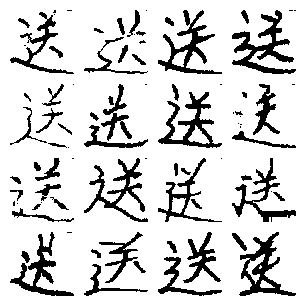 送送送送
送送送送
送送送送
送送送送